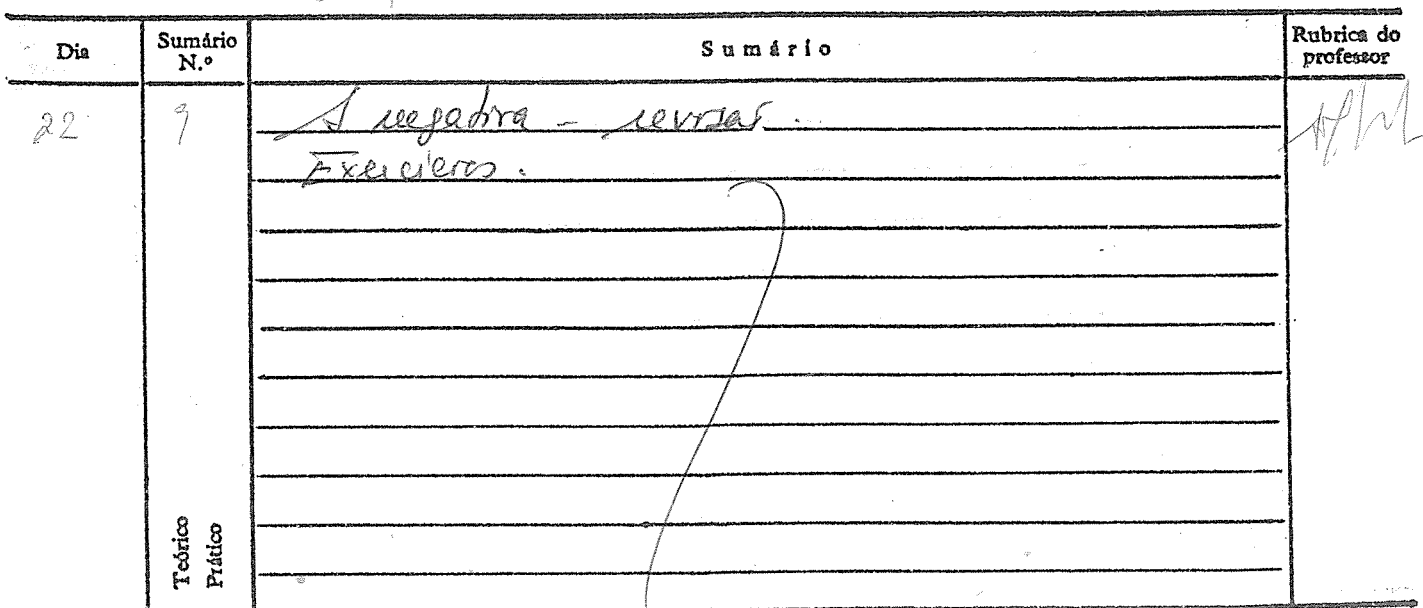 Dia
Sumário N.º
Sumário
Rubrica do professor
22
9
A negativa - revisão.
Exercícios.
Teórico
Prático